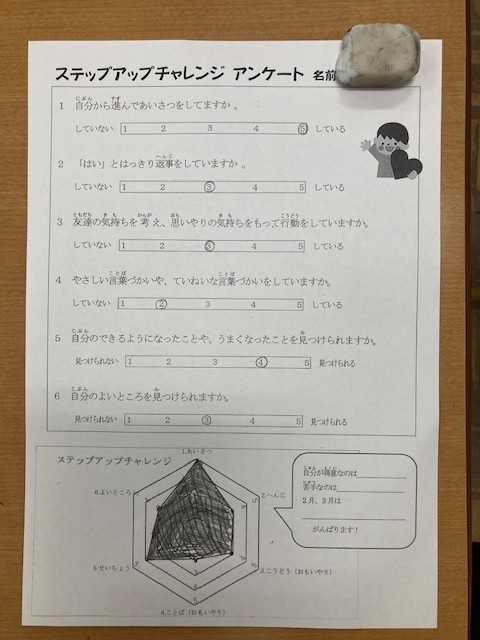 ステップアップチャレンジ アンケート 名前
1 自分から進んであいさつをしてますか 。
していない 1 2 3 4 5 している
2 「はい」とはっきり返事をしていますか 。
していない 1 2 3 4 5 している
3 友達の気持ちを 考 え、思いやりの気持ちをもって行動をしていますか。
していない 1 2 3 4 5 している
4 やさしい言葉づかいや、ていねいな言葉づかいをしていますか。
していない 1 2 3 4 5 している
5 自分のできるようになったことや、うまくなったことを見つけられますか。
見つけられない 1 2 3 4 5 見つけられる
6 自分のよいところを見つけられますか。
見つけられない 1 2 3 4 5 見つけられる
ステップアップチャレンジ
1.あいさつ
2.へんじ
3.こうどう（おもいやり）
4.ことば（おもいやり）
5.せいちょう
6.よいところ
自分が得意なのは
苦手なのは
2月、3月は
がんばります！